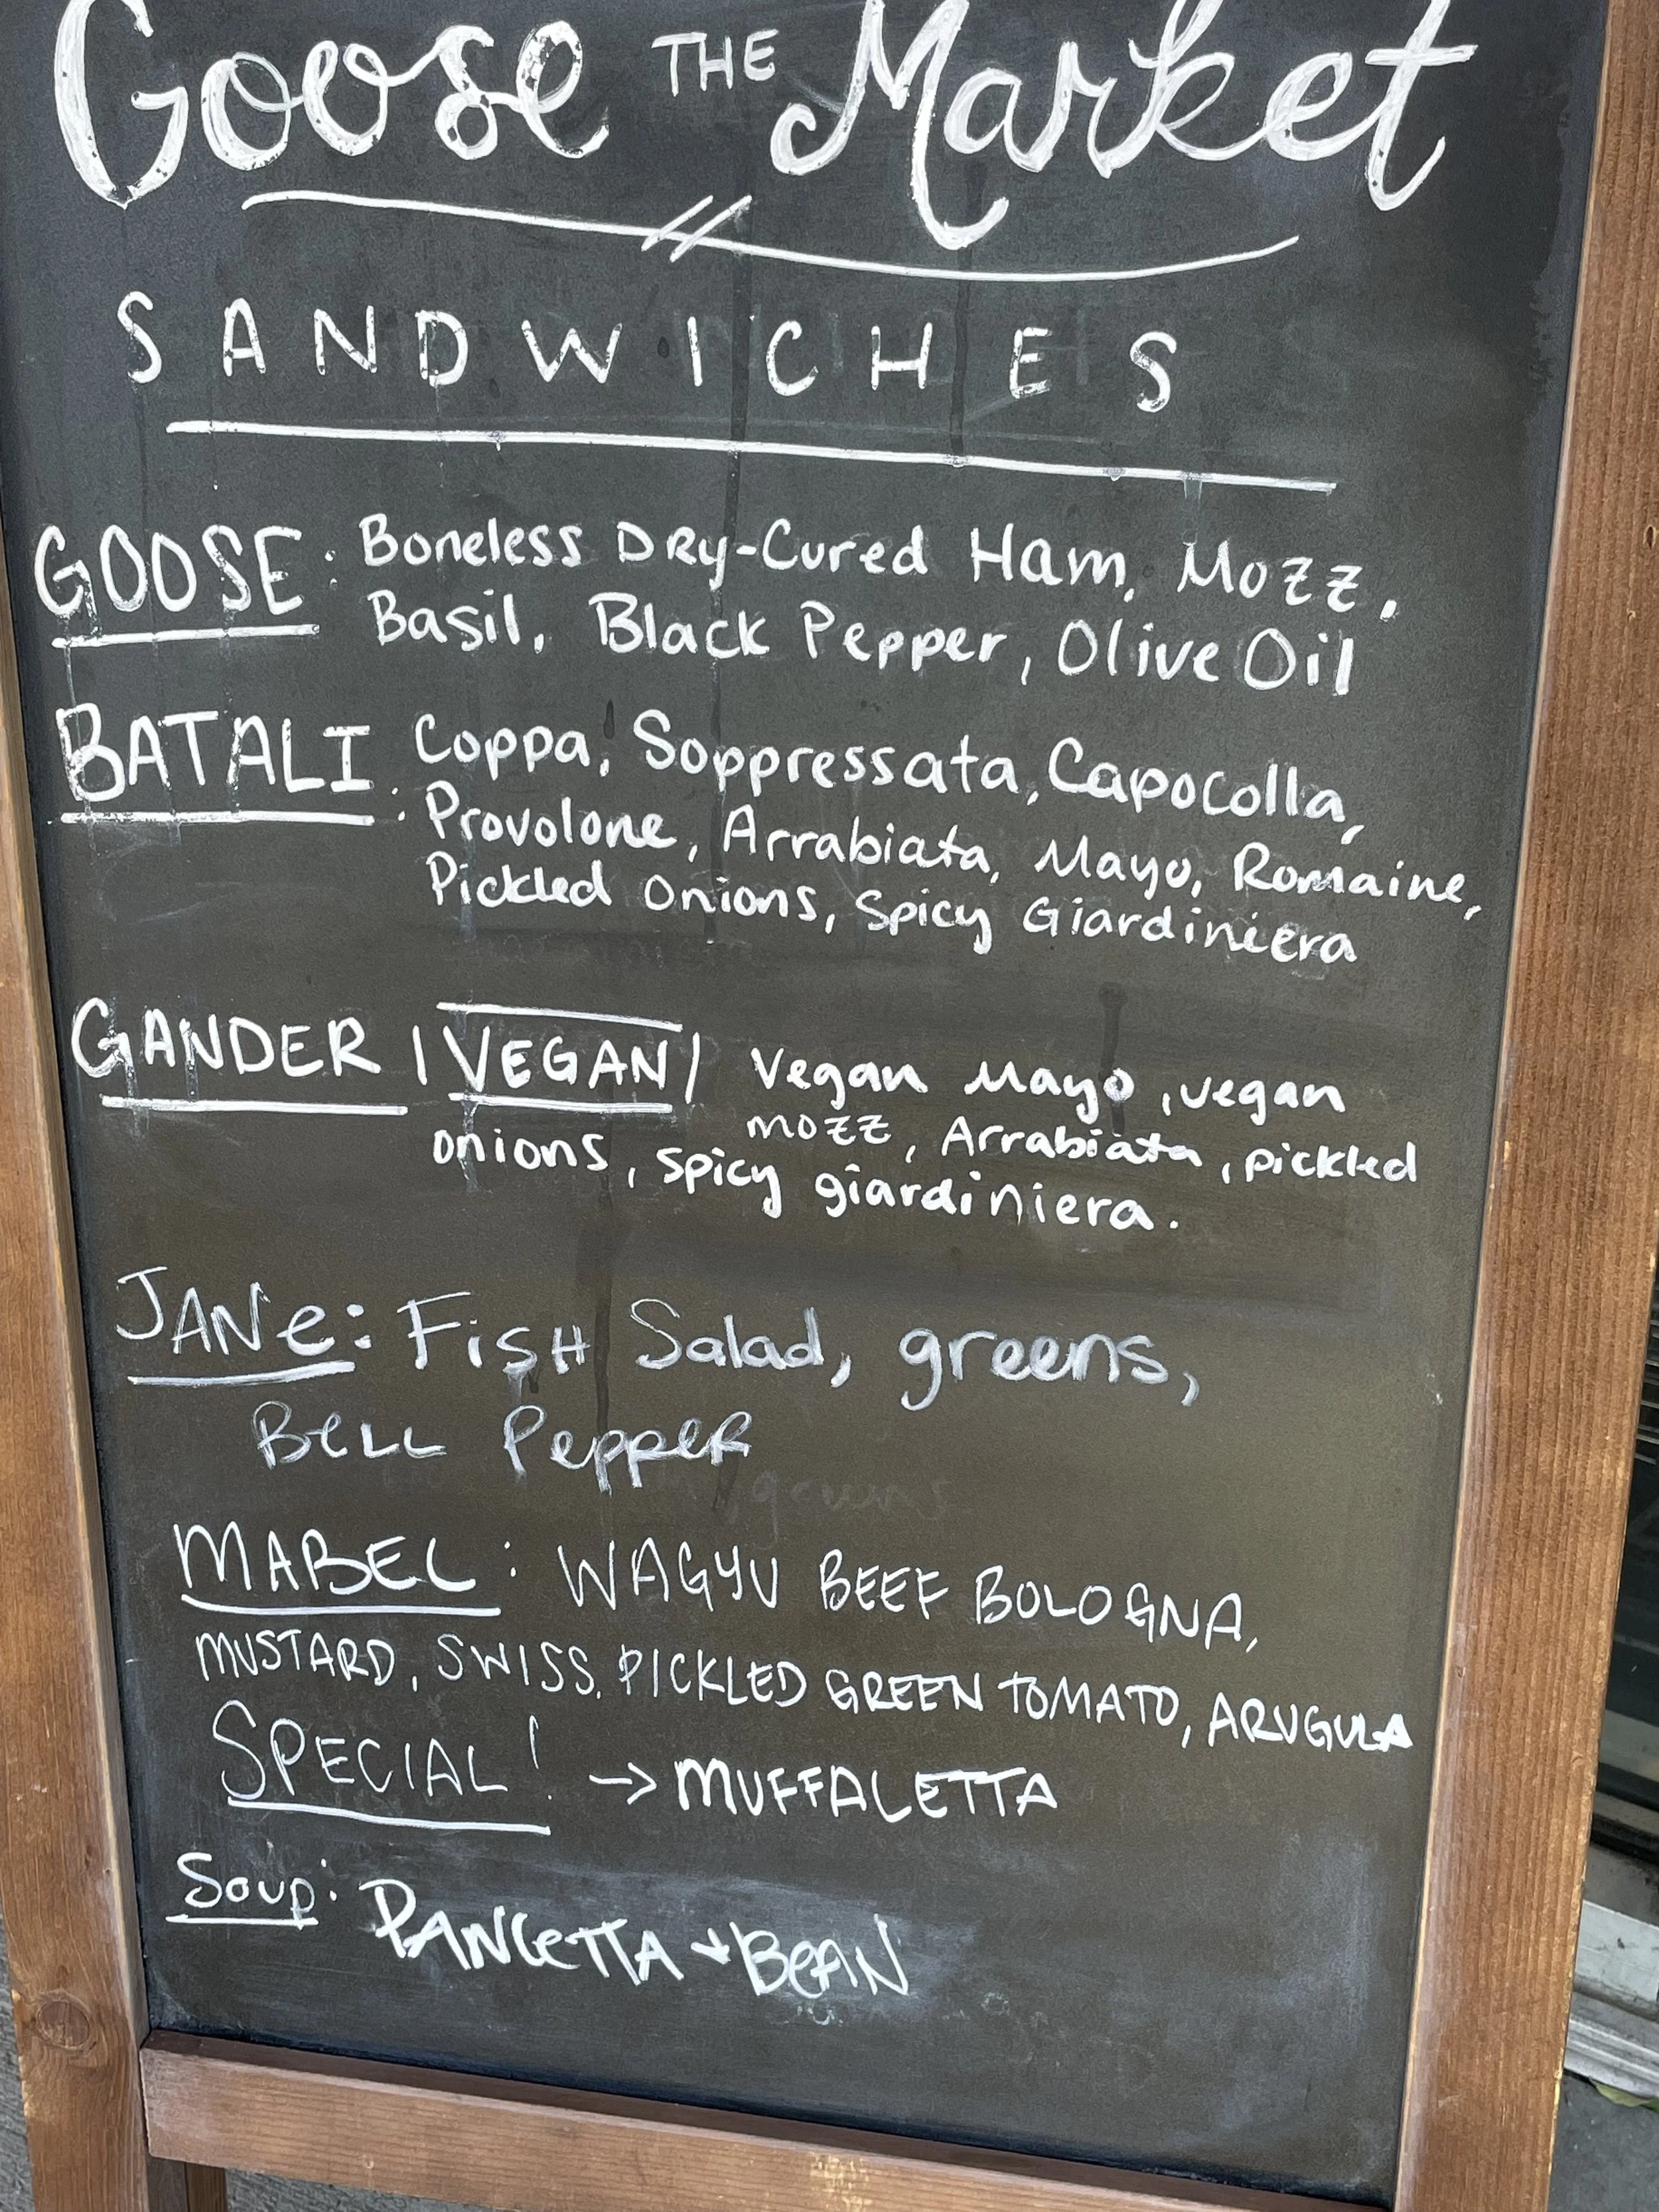 Goose THE Market
SANDWICHES
GOOSE: Boneless Dry-Cured Ham, Mozz,
Basil, Black Pepper, Olive Oil
BATALI: Coppa, Soppressata, Capocolla,
Provolone, Arrabiata, Mayo, Romaine,
Pickled Onions, Spicy Giardiniera
GANDER |VEGAN| Vegan Mayo, vegan
mozz, Arrabiata, pickled
onions, spicy giardiniera.
JANe: FisH Salad, greens,
BeLL PeppeR
MABEL: WAGYU BEEF BOLOGNA,
MUSTARD, SWISS, PICKLED GREEN TOMATO, ARUGULA
SPECIAL! → MUFFALETTA
Soup: PANCeTTA + BeAN